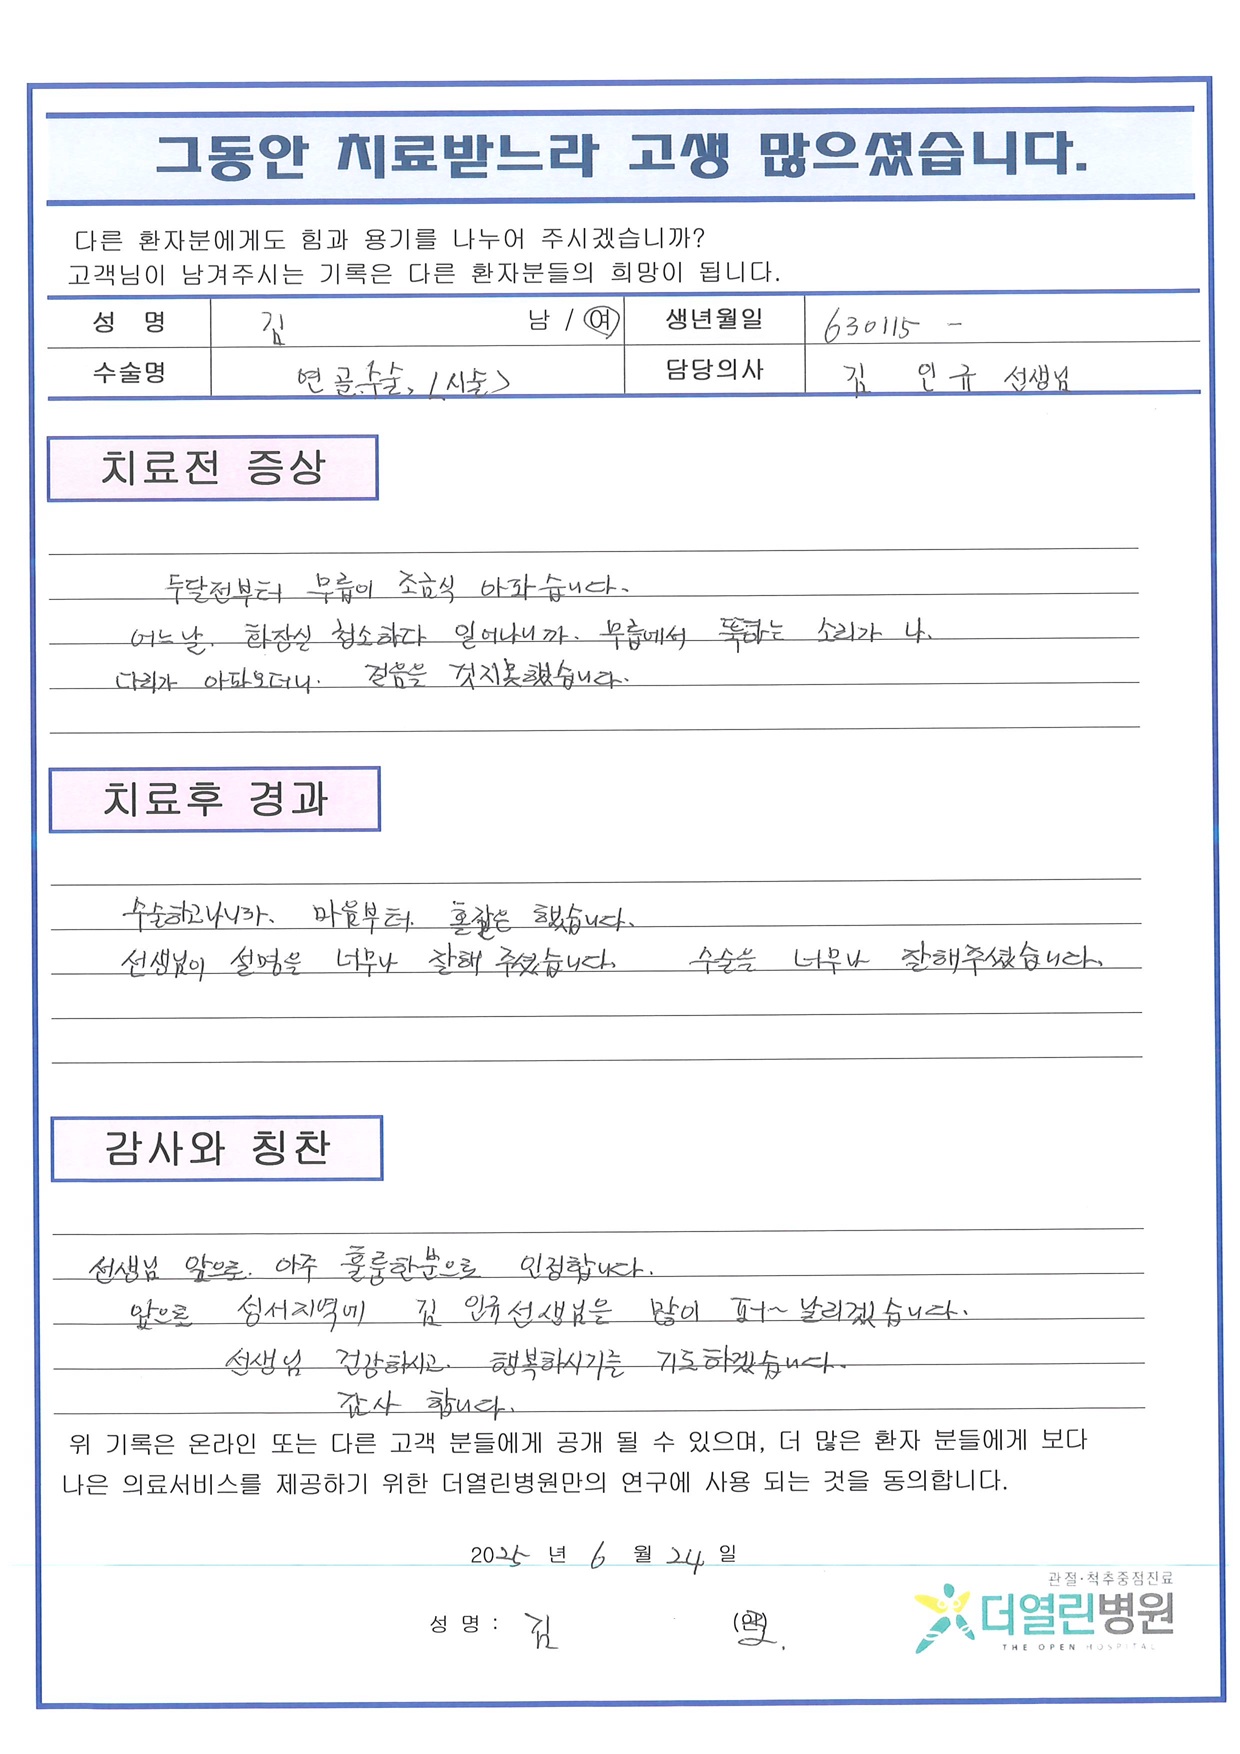 그동안 치료받느라 고생 많으셨습니다.
다른 환자분에게도 힘과 용기를 나누어 주시겠습니까?
고객님이 남겨주시는 기록은 다른 환자분들의 희망이 됩니다.
성 명 김 남 / 여 생년월일 630115 -
수술명 연골수술, (시술) 담당의사 김 인규 선생님
치료전 증상
두달전부터 무릎이 조금식 아파습니다.
어느날. 화장실 청소하다 일어나니까. 무릅에서 뚝하는 소리가 나.
다리가 아파오더니. 걸음을 것지못했습니다.
치료후 경과
수술하고나니까. 마음부터. 홀잘은 했습니다.
선생님이 설명을 너무나 잘해 주셨습니다. 수술을 너무나 잘해주셨습니다.
감사와 칭찬
선생님 앞으로. 아주 훌룽한분으로 인정합니다.
앞으로 성서지역에 김 인규선생님을 많이 퍼~ 날리겠습니다.
선생님 건강하시고. 행복하시기를 기도하겠습니다.
감사 합니다.
위 기록은 온라인 또는 다른 고객 분들에게 공개 될 수 있으며, 더 많은 환자 분들에게 보다
나은 의료서비스를 제공하기 위한 더열린병원만의 연구에 사용 되는 것을 동의합니다.
2025 년 6 월 24 일
관절·척추중점진료
성 명 : 김 (인)
더열린병원
THE OPEN HOSPITAL